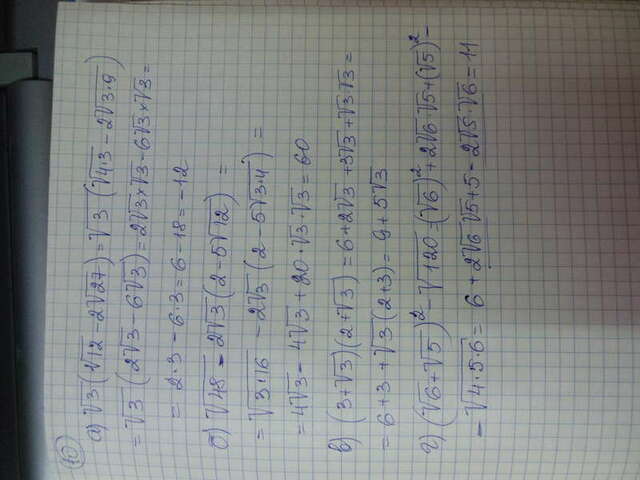 10
а) √3(√12 - 2√27) = √3 (√4·3 - 2√3·9)
= √3 (2√3 - 6√3) = 2√3×√3 - 6√3×√3 =
= 2·3 - 6·3 = 6 - 18 = -12
б) √48 - 2√3(2 - 5√12) =
= √3·16 - 2√3 (2 - 5√3·4) =
= 4√3 - 4√3 + 20·√3·√3 = 60
в) (3+√3)(2+√3) = 6+2√3+3√3+√3·√3 =
= 6+3+√3(2+3) = 9+5√3
г) (√6+√5)² - √120 = (√6)² + 2√6·√5 + (√5)² -
- √4·5·6 = 6 + 2√6 √5 + 5 - 2√5·√6 = 11